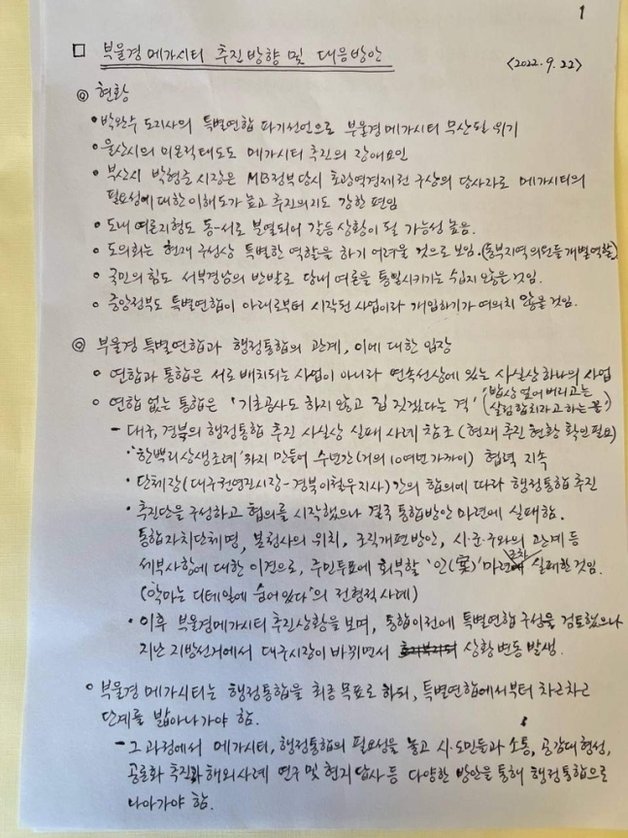 1
□ 부울경 메가시티 추진방향 및 대응방안
<2022. 9. 22>
◎ 현황
∘ 박완수 도지사의 특별연합 파기선언으로 부울경 메가시티 무산될 위기
∘ 울산시의 미온적 태도도 메가시티 추진의 장애요인
∘ 부산시 박형준 시장은 MB정부 당시 초광역경제권 구상의 당사자로 메가시티의
필요성에 대한 이해도가 높고 추진의지도 강한 편임
∘ 도내 여론지형도 동-서로 분열되어 갈등 상황이 될 가능성 높음.
∘ 도의회는 현재 구성상 특별한 역할을 하기 어려울 것으로 보임. (동부지역 의원들 개별역할)
∘ 국민의 힘도 서부경남의 반발로 당내 여론을 통일시키기는 쉽지 않을 것임.
∘ 중앙정부도 특별연합이 아래로부터 시작된 사업이라 개입하기가 여의치 않을 것임.
◎ 부울경 특별연합과 행정통합의 관계, 이에 대한 입장
∘ 연합과 통합은 서로 배치되는 사업이 아니라 연속선상에 있는 사실상 하나의 사업
∘ 연합 없는 통합은 '기초공사도 하지 않고 집 짓겠다는 격' ('밥상 엎어 버리고는
살림 합치자고 하는 꼴')
- 대구, 경북의 행정통합 추진 사실상 실패 사례 참조 (현재 추진 현황 확인 필요)
· '한뿌리상생조례'까지 만들어 수년간(거의 10여년 가까이) 협력 지속
· 단체장(대구권영진시장-경북이철우지사)간의 합의에 따라 행정통합 추진
· 추진단을 구성하고 협의를 시작했으나 결국 통합방안 마련에 실패함.
통합자치단체명, 본청사의 위치, 조직개편방안, 시·군·구와의 관계 등
세부사항에 대한 이견으로, 주민투표에 회부할 '안(案)' 마련에 실패한 것임.
('악마는 디테일에 숨어 있다'의 전형적 사례)
· 이후 부울경메가시티 추진상황을 보며, 통합 이전에 특별연합 구성을 검토했으나
지난 지방선거에서 대구시장이 바뀌면서 상황 변동 발생.
∘ 부울경 메가시티는 행정통합을 최종 목표로 하되, 특별연합에서부터 차근차근
단계를 밟아나가야 함.
- 그 과정에서 메가시티, 행정통합의 필요성을 놓고 시·도민들과 소통, 공감대 형성,
공론화 추진과 해외사례 연구 및 현지 답사 등 다양한 방안을 통해 행정통합으로
나아가야 함.